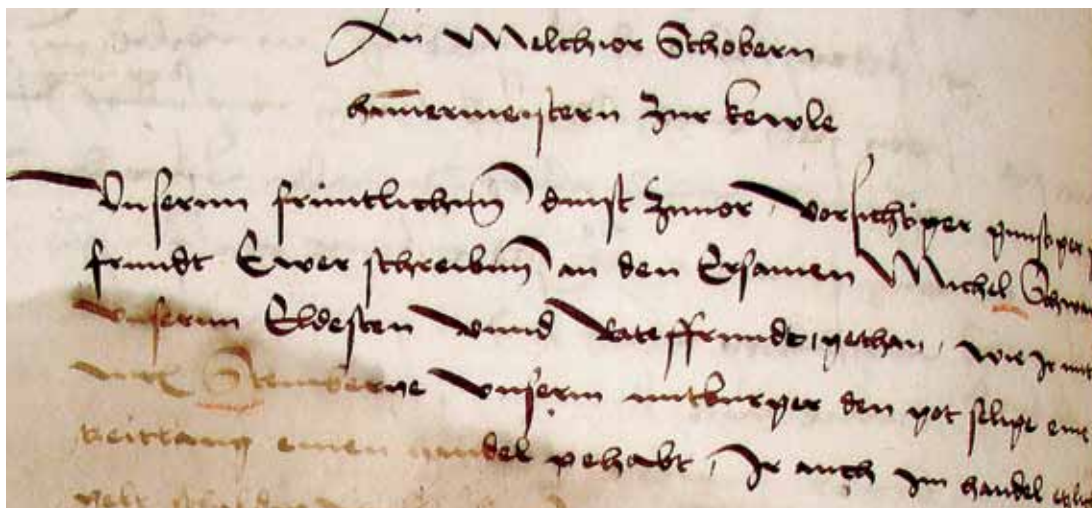 An Melchior Schobern
ham̄ermeistern zur kewle
Unsernn fruntlichenn dinst zuuor, Vorsichtiger gunstiger
frundt Ewer schreibenn an den Ersamen Michel
vnsernn Eldesten vnnd Rateffrundt, gethan, wie Ir mit
vnserm mitburger den got selige
zeitlang einen handel gehabt, Ir auch Im handel